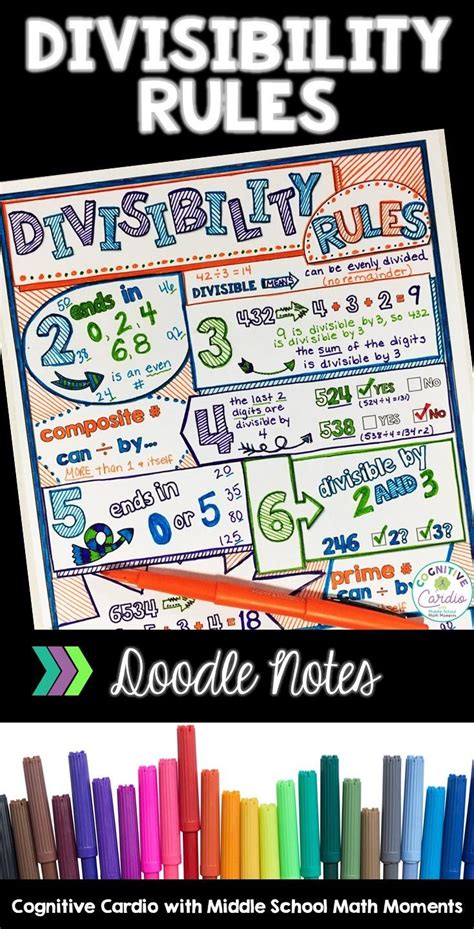 DIVISIBILITY
RULES
DIVISIBILITY
RULES
42÷3=14
DIVISIBLE MEANS can be evenly divided
(no remainder)
50 ends in 46
2 0, 2, 4
6, 8
38 02
is an even
24 #
3 432 4 + 3 + 2 = 9
9 is divisible by 3, so 432
is divisible by 3
the sum of the digits
is divisible by 3
composite #
can ÷ by...
MORE than 1 & itself
4 the last 2
digits are
divisible by
4
524 YES NO
(524÷4=131)
538 YES NO
(538÷4=134r2)
5 ends in
0 or 5
20
35
180
125
6 divisible by
2 AND 3
246 2? 3?
6534
prime #
can ÷
COGNITIVE
Cardio
Middle School
Math Moments
Doodle Notes
Cognitive Cardio with Middle School Math Moments